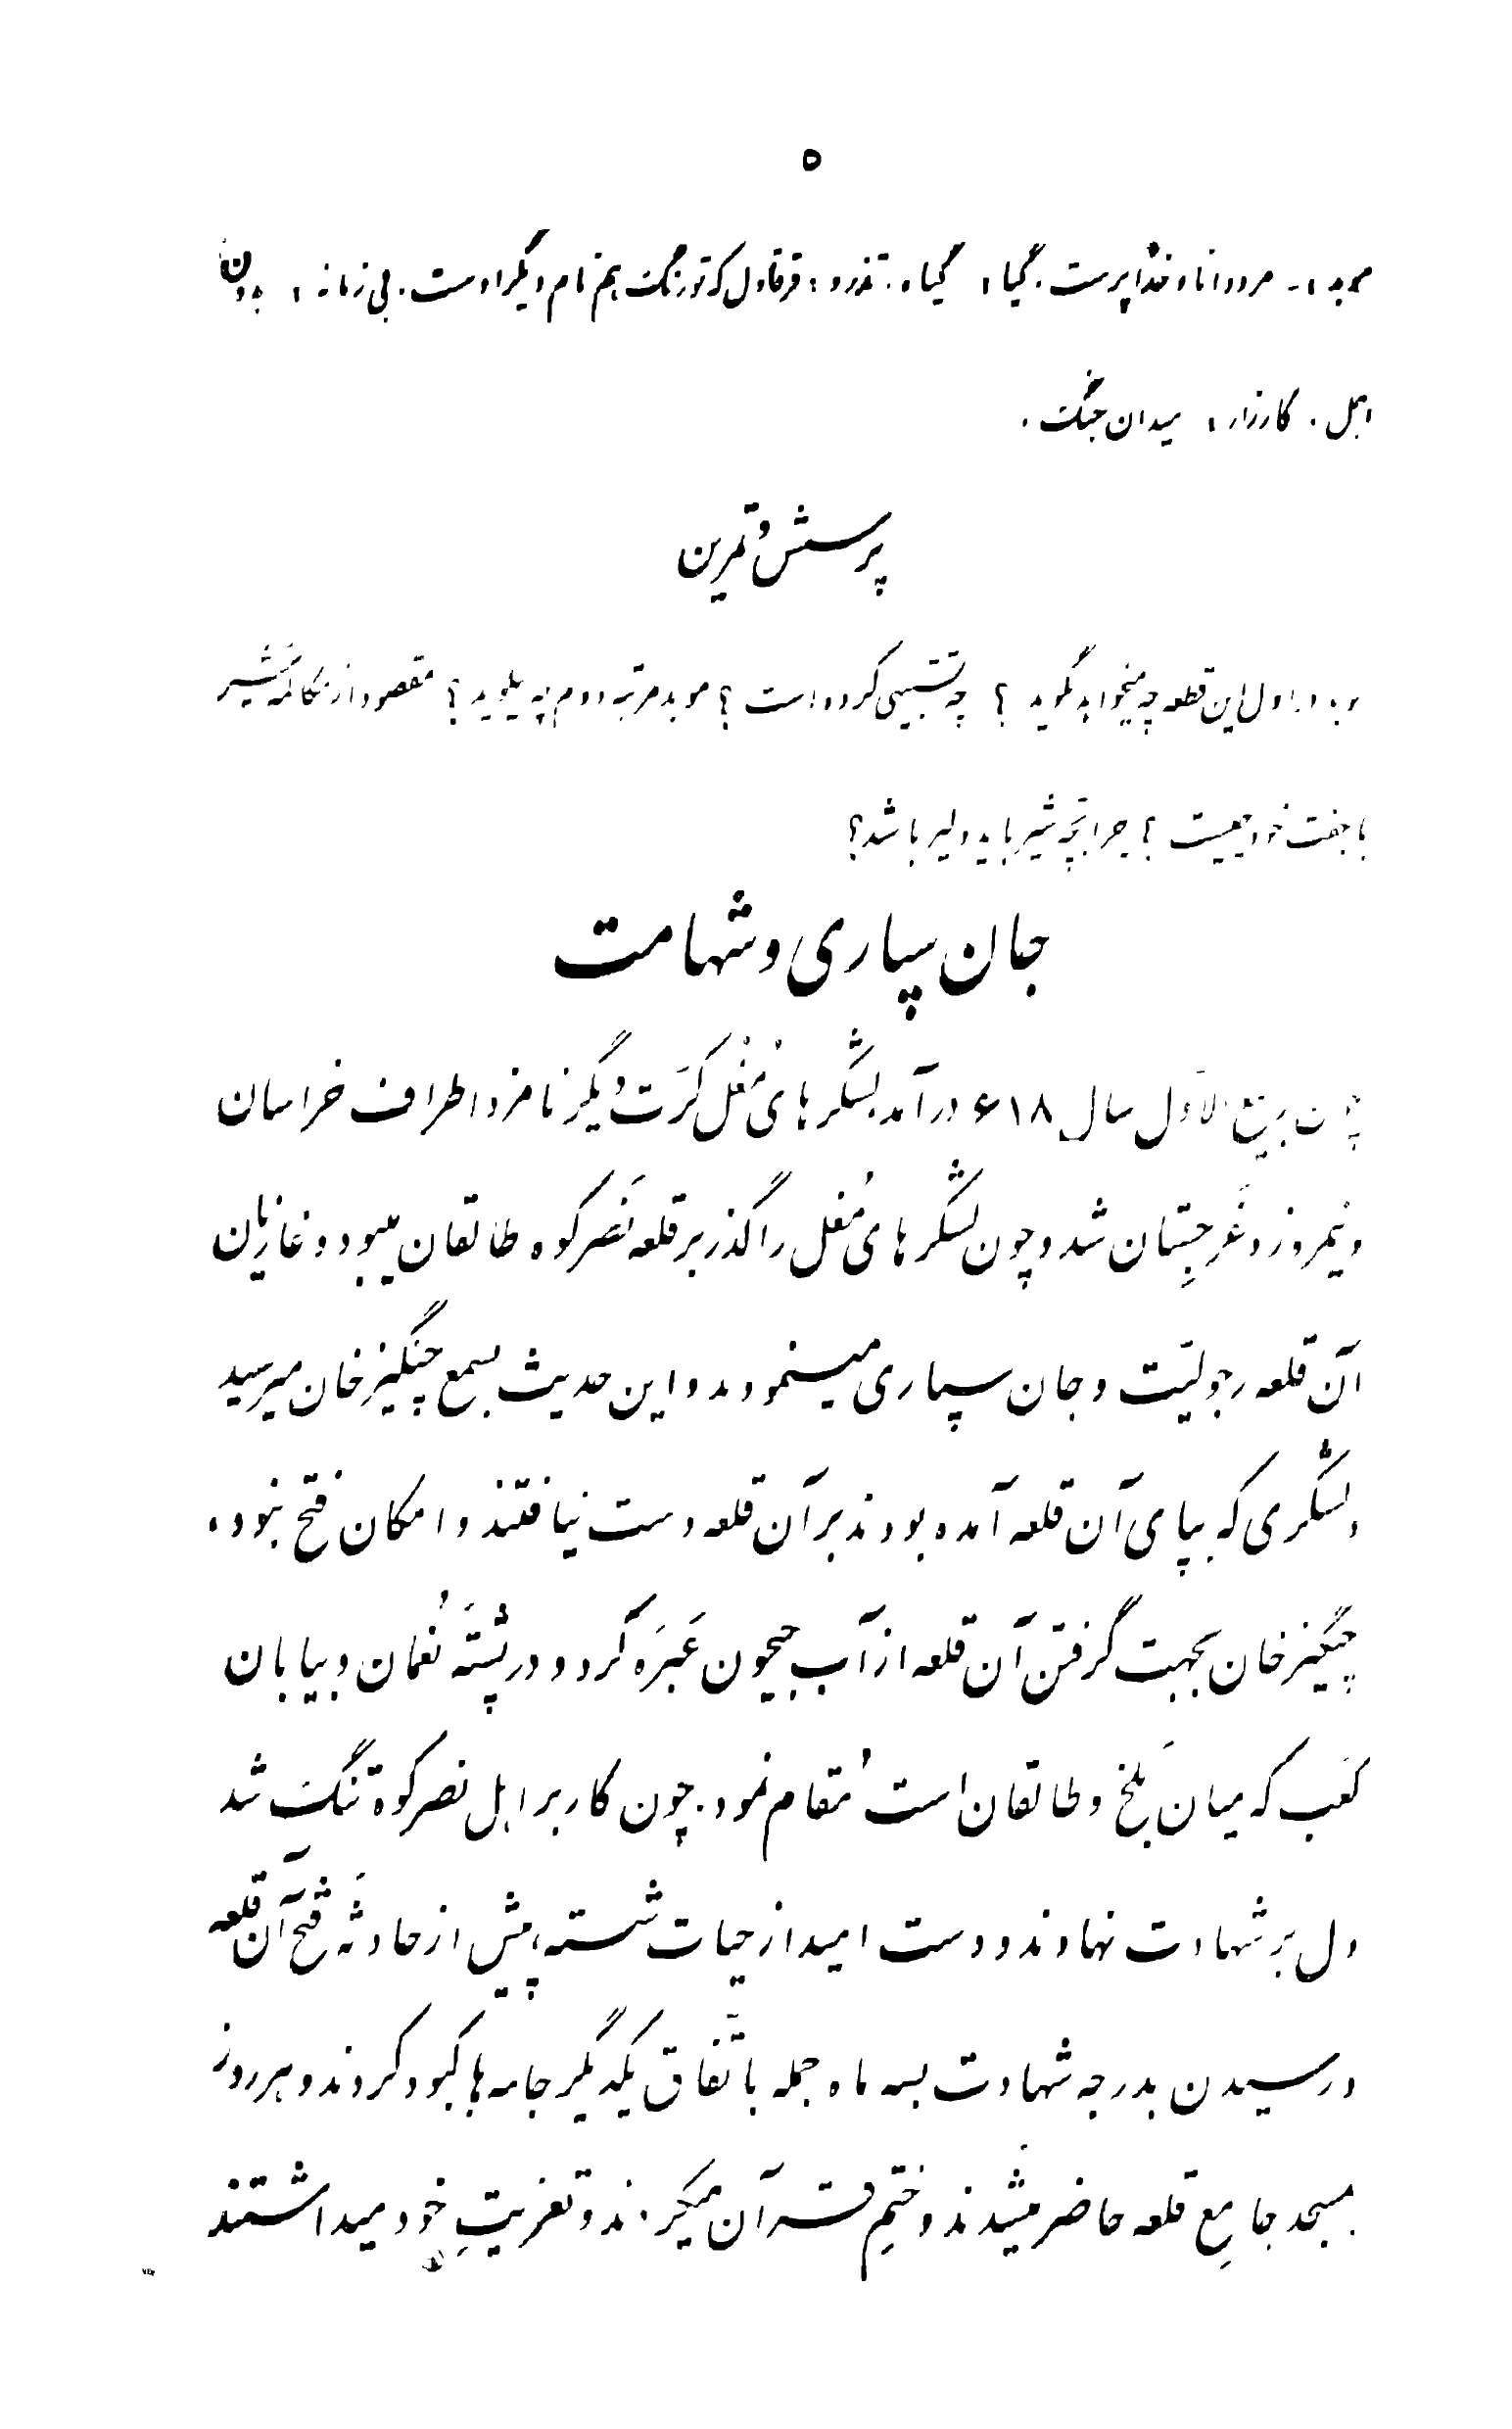 ۵
موبد: مرد دانا و خداپرست. گیا: گیاه. تذرو: قرقاول که تورنگ هم نام دیگر اوست. بی زمانه: بدون
اجل. کارزار: میدان جنگ.
پرسش و تمرین
موبد اول این قطعه چه میخواهد بگوید؟ چه تشبیهی کرده است؟ موبد مرتبه دوم چه میگوید؟ مقصود از مکالمه شیر
با جفت خود چیست؟ چرا بچه شیر باید دلیر باشد؟
جان سپاری و شهامت
چون ربیع الاول سال ۶۱۸ درآمد لشگرهای مُغُل کَرَّت دیگر نامزد اطراف خراسان
و نیمروز و غَرجِستان شد و چون لشگرهای مُغل را گذر بر قلعه نَصرکوه طالقان میبود و غازیان
آن قلعه رجولیّت و جان سپاری مینمودند و این حدیث بسمع چنگیز خان میرسید
لشگری که بپای آن قلعه آمده بودند بر آن قلعه دست نیافتند و امکان فتح نبود،
چنگیز خان بجهت گرفتن آن قلعه از آب جیحون عَبَرَه کرد و در پشتَه نُعمان و بیابان
کَعب که میان بَلخ و طالقان است مُقام نمود. چون کار بر اهل نصرکوه تنگ شد
دل بر شهادت نهادند و دست امید از حیات شسته، پیش از حادثَه فتح آن قلعه
و رسیدن بدرجه شهادت بسه ماه جمله باتّفاق یکدیگر جامه ها کبود کردند و هر روز
بمسجد جامِع قلعه حاضر میشدند و ختمِ قرآن میکردند و تعزیتِ خود میداشتند